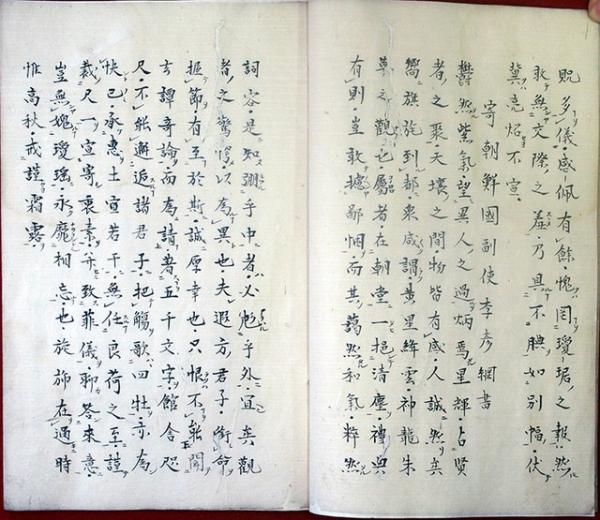 貺多儀感佩有餘愧罔瓊琚之報然
敢無交際之羞乃具不腆如別幅伏
冀亮炤不宣
寄朝鮮國副使李彥綱書
欝然紫氣望異人之過炳焉星輝占賢
者之聚天壤之間物皆有感人誠然矣
嚮旗旄到都衆咸謂黃星絳雲神龍朱
草之觀已屬者在朝堂一挹清塵禮與
有則豈敢攄鄙悃而其藹然和氣粹然
詞容是知弸乎中者必彪乎外宜矣觀
者之驚愕以為異也夫遐方君子銜命
振節有至於斯誠厚幸也只恨不能聞
玄譚奇論而為請著五千文字館舍咫
尺不能邂逅諸君子把觴歌四牡亦為
快已承惠土宜若干無任良荷之至謹
裁尺一宣寄衷素并致菲儀聊答來意
豈無愧瓊瑤永靡相忘也旋斾在邇時
惟高秋戒謹霜露